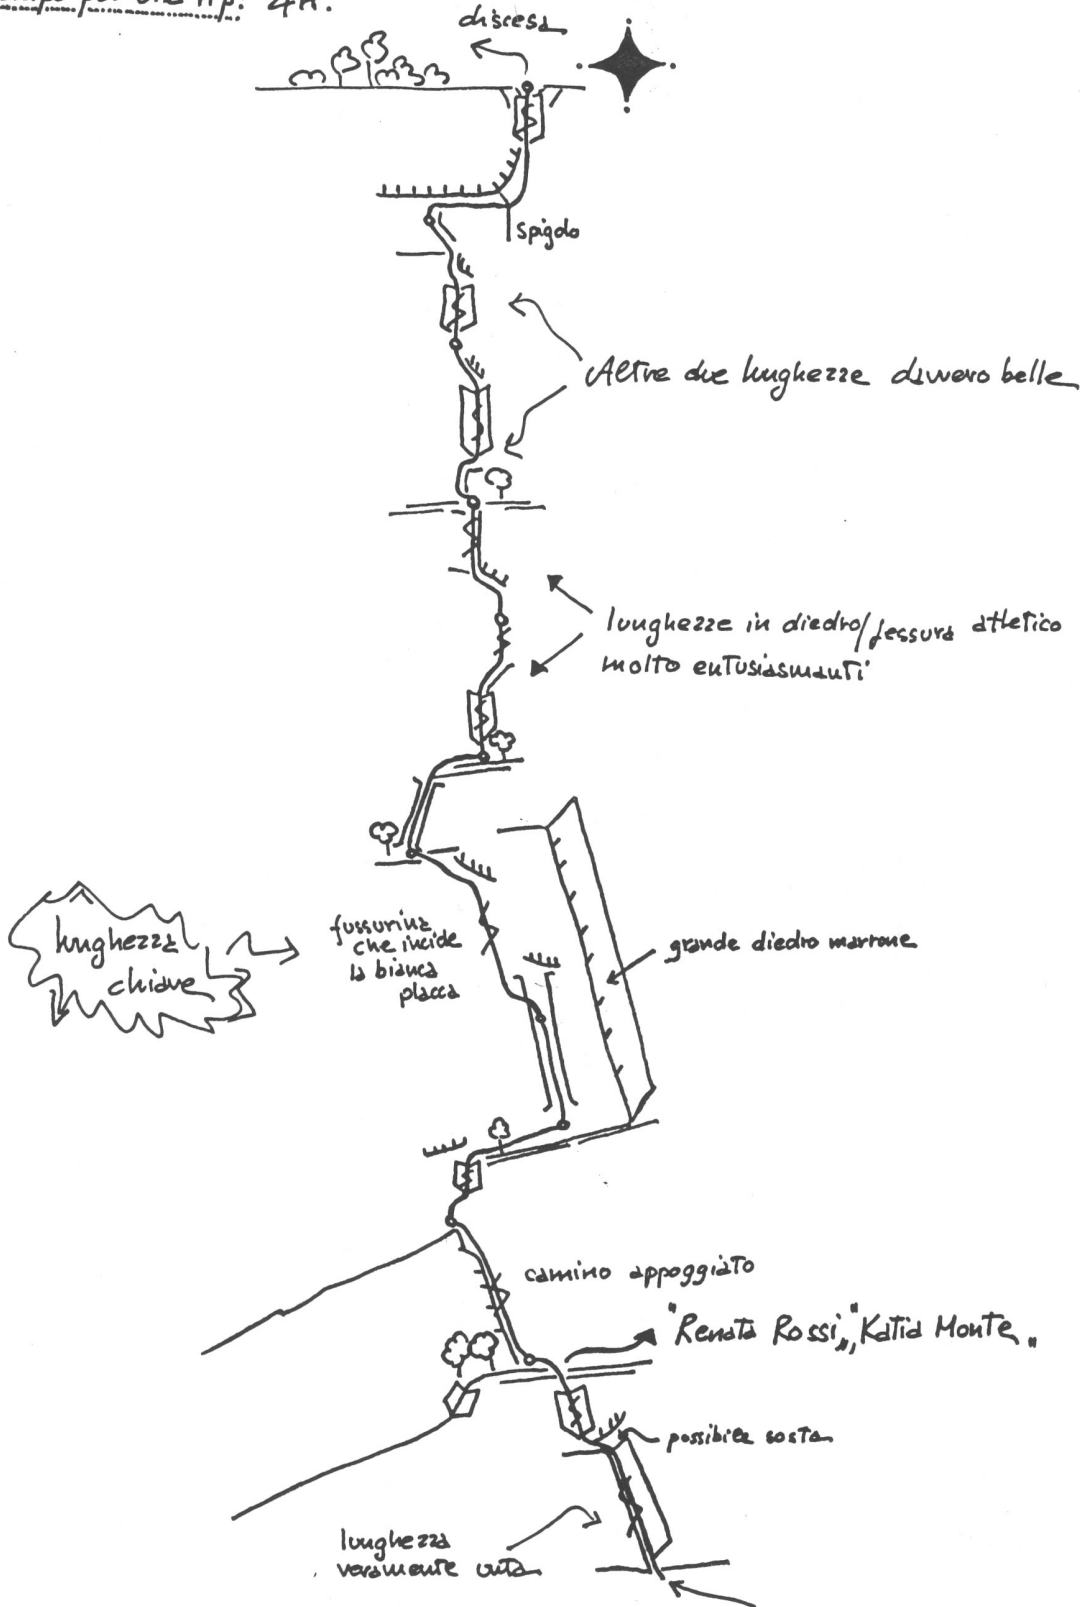 per una rip. 4h.
discesa
spigolo
Altre due lunghezze davvero belle
lunghezze in diedro/fessura atletico
molto entusiasmanti
lunghezza
chiave
fussurina
che incide
la bianca
placca
grande diedro marrone
camino appoggiato
"Renata Rossi", "Katia Monte"
possibile sosta
lunghezza
veramente